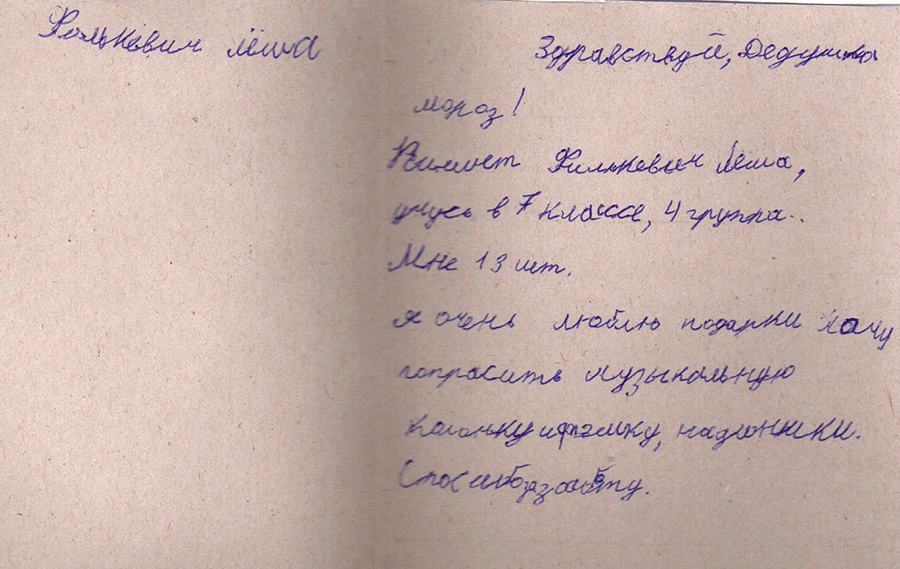 Фалькевич Лёша
Здравствуй, Дедушка
мороз!
Пишет Филькевич Лёша,
учусь в 7 классе, 4 группа..
Мне 13 лет.
я очень люблю подарки Хочу
попрасить музыкальную
калонку
Спасибозазаботу.